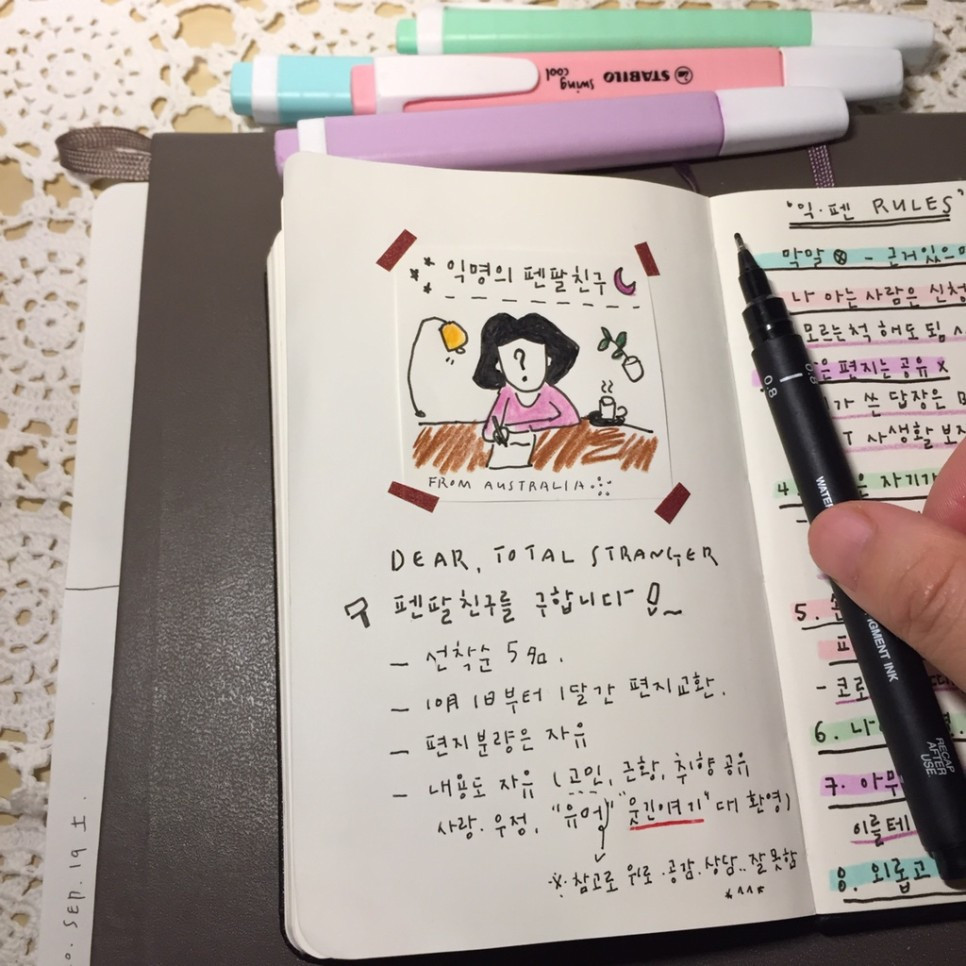 STABILO swing cool
익명의 펜팔친구
?
FROM AUSTRALIA
DEAR, TOTAL STRANGER
펜팔친구를 구합니다 !~
- 선착순 5명.
- 10월 1일부터 1달간 편지교환.
- 편지분량은 자유
- 내용도 자유 (고민, 근황, 취향공유
사랑. 우정, "유머" "웃긴이야기" 대 환영)
※. 참고로 위로.공감.상담..잘못함
*^^*
"익.펜 RULES"
막말 ⊗ - 근거있는
나 아는사람은 신청
모르는척 해도 됨
편지는 공유 X
가 쓴 답장은
사생활 보
4. 자기
5.
- 코로
6. 나
7. 아무
이를테
8. 외롭고
0.8
WATER
PIGMENT INK
RECAP AFTER USE
SEP. 19 土.